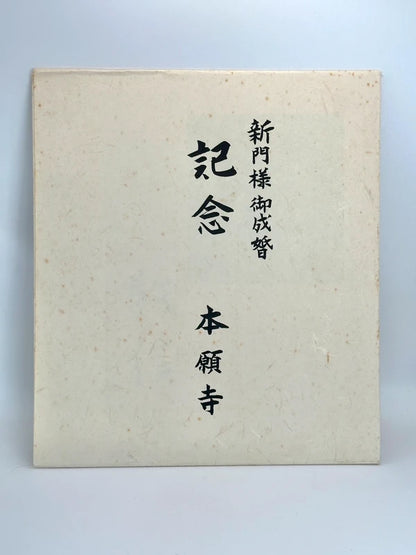 新門様御成婚
記念 本願寺